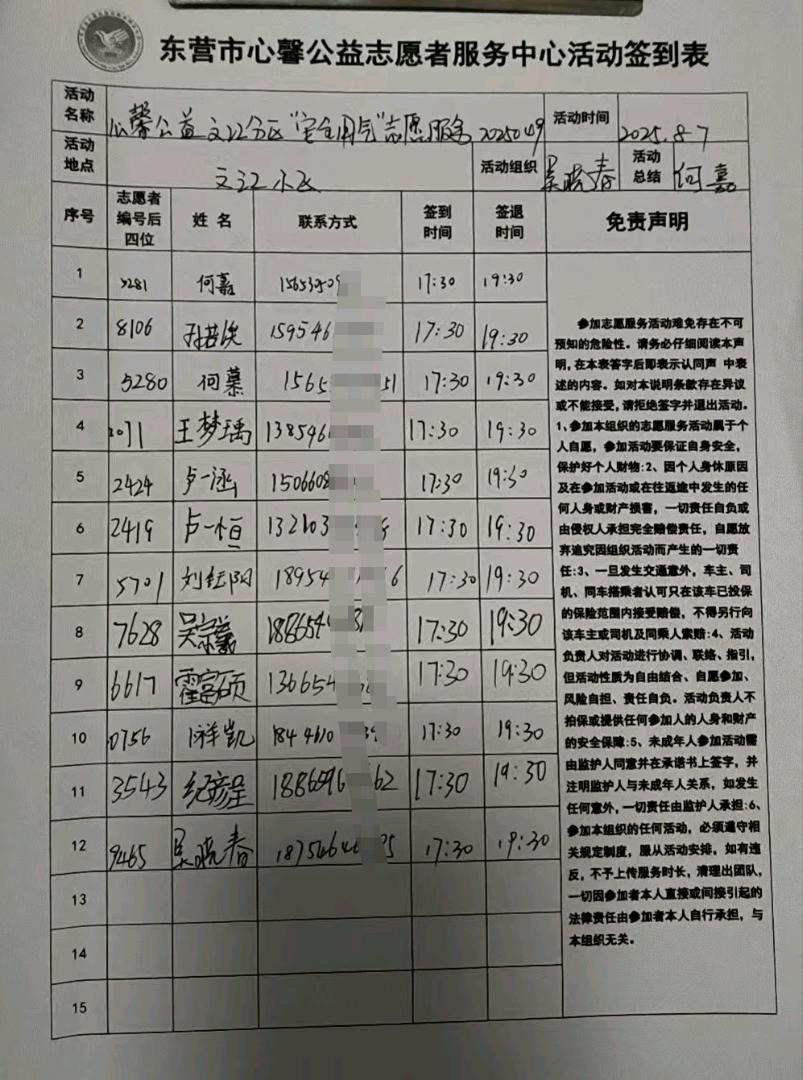 东营市心馨公益志愿者服务中心活动签到表
活动名称 心馨公益文汇分区“安全用气”志愿服务 20250149 活动时间 2025.8.7
活动地点 文汇小区 活动组织 吴晓春 活动总结 何嘉
序号 志愿者编号后四位 姓名 联系方式 签到时间 签退时间 免责声明
1 5281 何嘉 17:30 19:30
2 8106 159546 17:30 19:30
3 5280 何慕 1565 51 17:30 19:30
4 2071 王梦瑀 138596 17:30 19:30
5 2424 卢一涵 1506608 17:30 19:30
6 2419 卢一恒 132103 17:30 19:30
7 5701 刘钰阳 18954 6 17:30 19:30
8 7628 吴宗羲 188654 17:30 19:30
9 6617 霍富硕 136654 17:30 19:30
10 0756 祥凯 1844610 17:30 19:30
11 3543 纪彦呈 1886596 62 17:30 19:30
12 9465 吴晓春 1875464 17:30 19:30
13
14
15
参加志愿服务活动难免存在不可
预知的危险性。请务必仔细阅读本声
明,在本表签字后即表示认同声 中表
述的内容。如对本说明条款存有异议
或不能接受,请拒绝签字并退出活动。
1、参加本组织的志愿服务活动属于个
人自愿,参加活动要保证自身安全,
保护好个人财物:2、因个人身体原因
及在参加活动或在往返途中发生的任
何人身或财产损害,一切责任自负或
由侵权人承担完全赔偿责任,自愿放
弃追究因组织活动而产生的一切责
任:3、一旦发生交通意外,车主、司
机、同车搭乘者认可只在该车已投保
的保险范围内接受赔偿,不得另行向
该车主或司机及同乘人索赔:4、活动
负责人对活动进行协调、联络、指引,
但活动性质为自由结合、自愿参加、
风险自担、责任自负。活动负责人不
担保或提供任何参加人的人身和财产
的安全保障:5、未成年人参加活动需
由监护人同意并在承诺书上签字,并
注明监护人与未成年人关系,如发生
任何意外,一切责任由监护人承担:6、
参加本组织的任何活动,必须遵守相
关规定制度,服从活动安排,如有违
反,不予上传服务时长,清理出团队,
一切因参加者本人直接或间接引起的
法律责任由参加者本人自行承担,与
本组织无关。